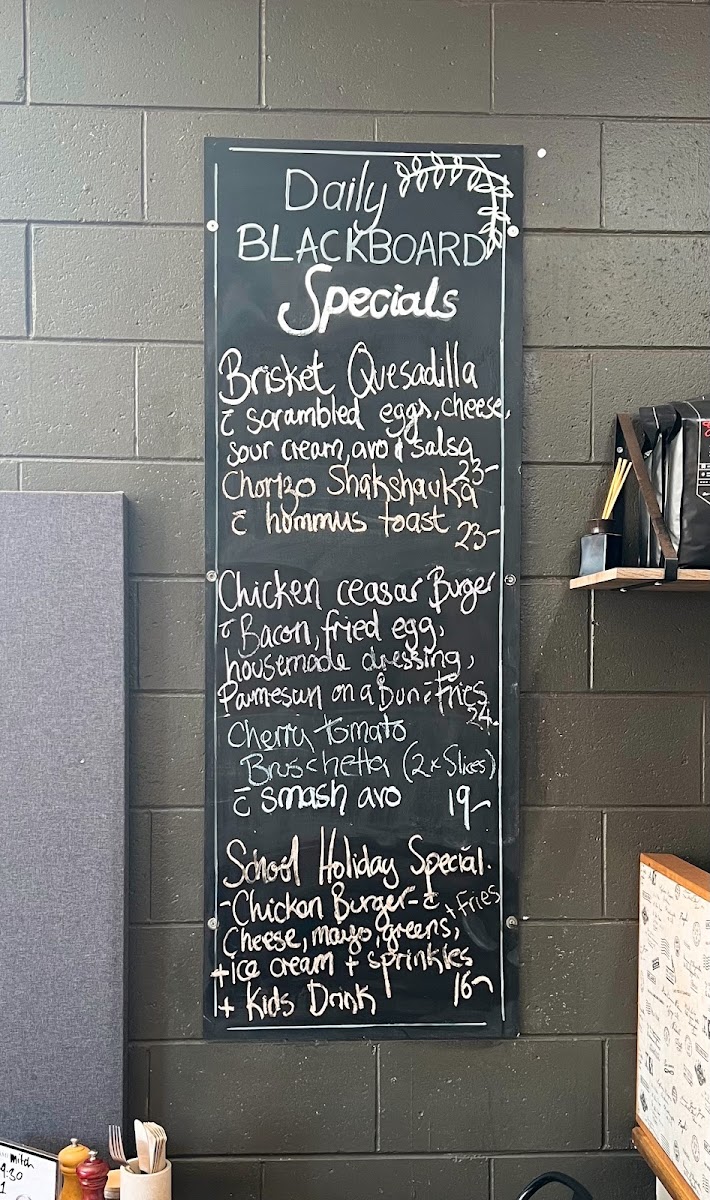 Daily
BLACKBOARD
Specials
Brisket Quesadilla
c̄ scrambled eggs, cheese,
sour cream, avo & salsa
23-
Chorizo Shakshauka
c̄ hommus toast
23-
Chicken ceasar Burger
c̄ Bacon, fried egg,
housemade dressing,
Parmesan on a Bun c̄ Fries
24.
Cherry tomato
Bruschetta (2x Slices)
c̄ smash avo 19-
School Holiday Special.
-Chicken Burger- c̄ + Fries
Cheese, mayo, greens,
+ice cream + sprinkles
+ Kids Drink 16-
mitch